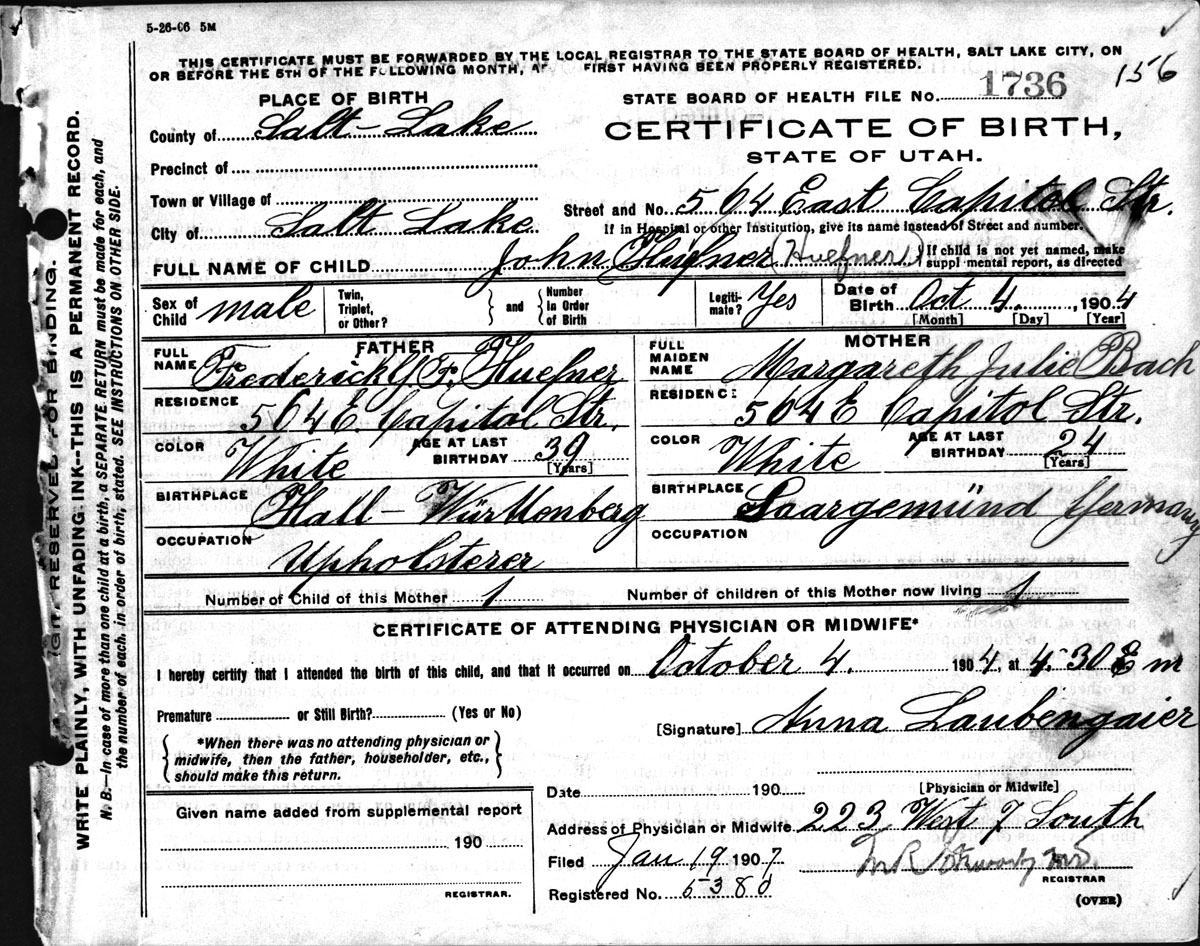 5-26-06 5M
THIS CERTIFICATE MUST BE FORWARDED BY THE LOCAL REGISTRAR TO THE STATE BOARD OF HEALTH, SALT LAKE CITY, ON
OR BEFORE THE 5TH OF THE FOLLOWING MONTH, AF FIRST HAVING BEEN PROPERLY REGISTERED.
156
PLACE OF BIRTH
STATE BOARD OF HEALTH FILE No. 1736
County of Salt-Lake
CERTIFICATE OF BIRTH,
STATE OF UTAH.
Precinct of
Town or Village of
Street and No. 504 East Capitol Str.
City of Salt Lake
If in Hospital or other Institution, give its name instead of Street and number.
FULL NAME OF CHILD John Hüfner (Huefner)
If child is not yet named, make
supplemental report, as directed
Sex of Child male
Twin, Triplet, or Other? and Number In Order of Birth
Legitimate? Yes
Date of Birth Oct 4. , 1904
[Month] [Day] [Year]
FATHER
FULL NAME Frederick G. F. Huefner
RESIDENCE 504 E Capitol Str.
COLOR White AGE AT LAST BIRTHDAY 39 [Years]
BIRTHPLACE Hall - Württenberg
OCCUPATION Upholsterer
MOTHER
FULL MAIDEN NAME Margareth Julie Bach
RESIDENCE 504 E Capitol Str.
COLOR White AGE AT LAST BIRTHDAY 24 [Years]
BIRTHPLACE Saargemünd Germany
OCCUPATION
Number of Child of this Mother 1 Number of children of this Mother now living 1
CERTIFICATE OF ATTENDING PHYSICIAN OR MIDWIFE*
I hereby certify that I attended the birth of this child, and that it occurred on October 4. 1904, at 4-30 m
Premature or Still Birth? (Yes or No)
[Signature] Anna Laubengaier
*When there was no attending physician or
midwife, then the father, householder, etc.,
should make this return.
[Physician or Midwife]
Date 190
Address of Physician or Midwife 223 West 7 South
Given name added from supplemental report
190
REGISTRAR.
Filed Jan 19 1907
REGISTRAR
Registered No. 5380
(OVER)
WRITE PLAINLY, WITH UNFADING INK--THIS IS A PERMANENT RECORD.
N. B.--In case of more than one child at a birth, a SEPARATE RETURN must be made for each, and
the number of each, in order of birth, stated. SEE INSTRUCTIONS ON OTHER SIDE.
RESERVED FOR BINDING.